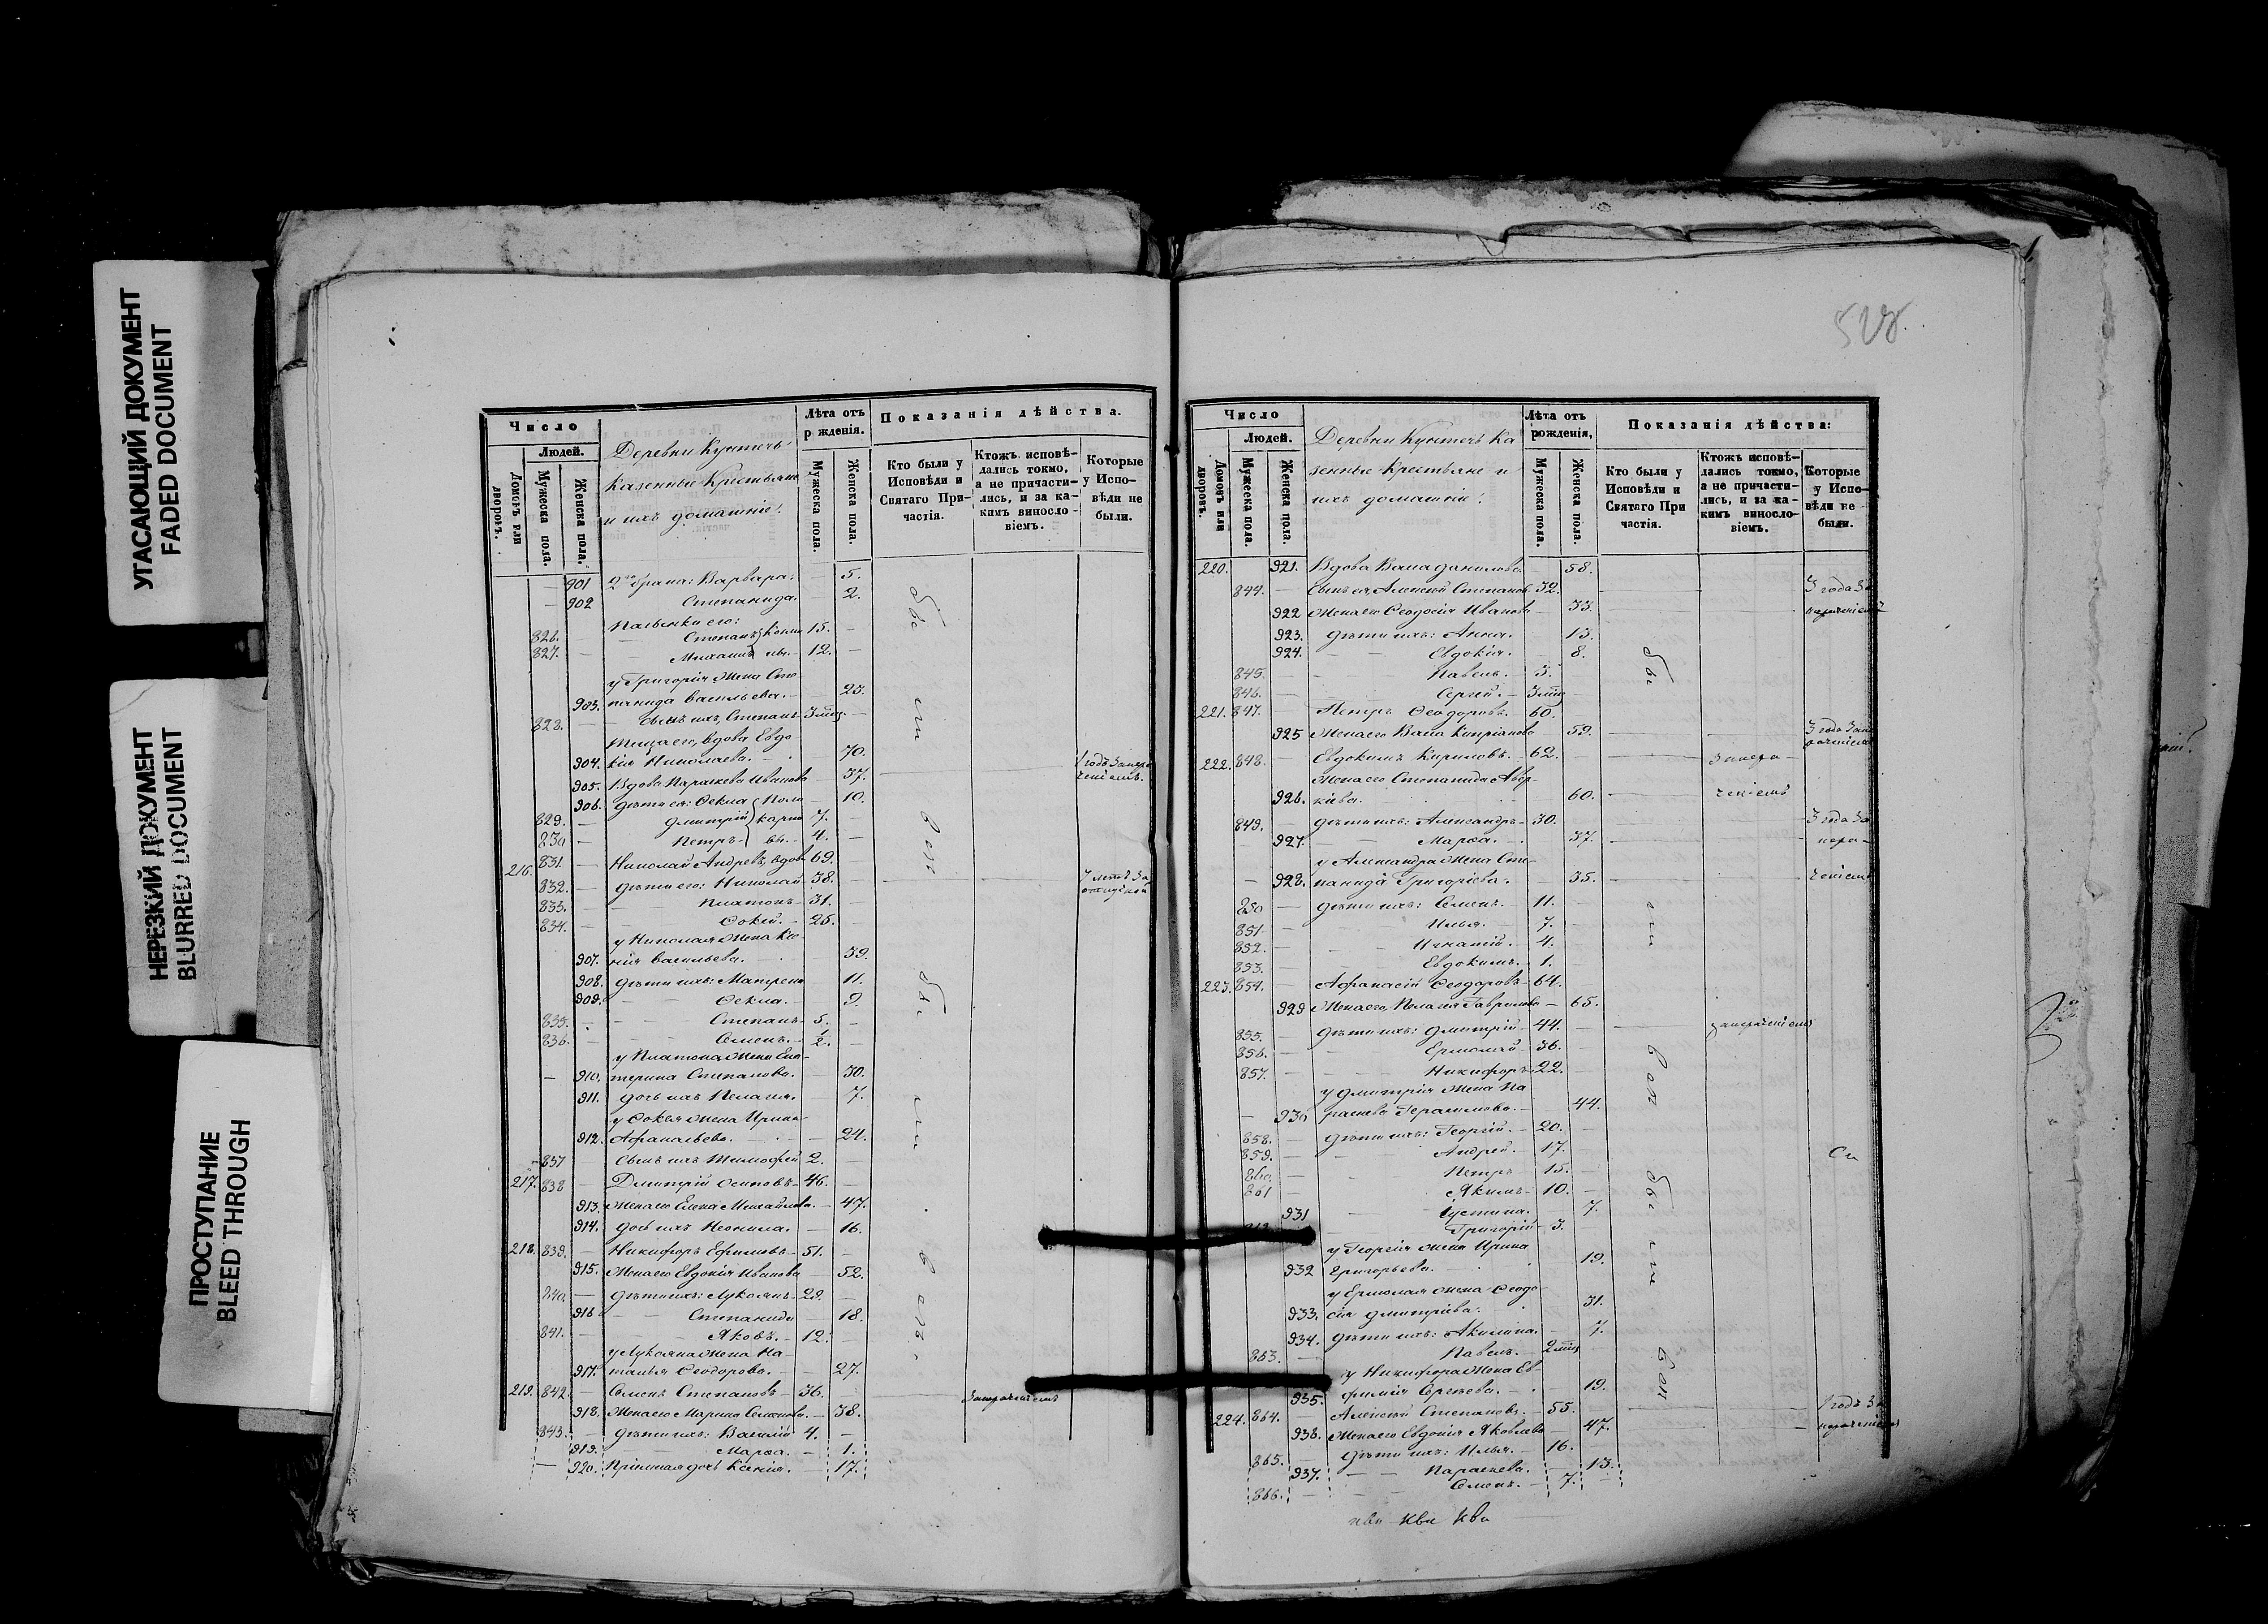 УГАСАЮЩИЙ ДОКУМЕНТ
FADED DOCUMENT
НЕРЕЗКИЙ ДОКУМЕНТ
BLURRED DOCUMENT
ПРОСТУПАНИЕ
BLEED THROUGH
Число
Людей.
Домовъ или дворовъ.
Мужеска пола.
Женска пола.
Деревни
Казенные Крестьяне
и ихъ домашніе:
Лѣта отъ рожденія.
Мужеска пола.
Женска пола.
Показанія дѣйства.
Кто были у Исповѣди и Святаго Причастія.
Ктожъ исповѣдались токмо, а не причастились, и за какимъ винословіемъ.
Которые у Исповѣди не были.
901 2го брака: Варвара. 5.
902 Степанида. 2.
826. Степанъ 15. —
827. Михаилъ 12. —
у Григорія Жена Сте-
903. панида Васильева. — 23.
828. Сынъ ихъ, Степанъ
вдова Евдо-
904. кія Николаева. 70.
905. Вдова Параскева Иванова 37. 1 годъ
906. Дѣти ея: Ѳекла 10.
829. Дмитрій 7.
830 Петръ 4. —
216. 831. — Николай Андреевъ, вдовъ 69.
832. — Дѣти его: Николай 38. 7 лѣтъ за
833. Платонъ 31.
834. Фокій. 25.
у Николая Жена Ксе-
907. нія Васильева. 39.
908. Дѣти ихъ: Матрена 11.
909. Ѳекла. 9.
835. Степанъ 5. —
836. Семенъ. 2. —
у Платона Жена Ека-
910. терина Степанова. 30.
911. Дочь ихъ Пелагія. 7.
у Фокія Жена Ирина
912. Афанасьева. — 24.
837 Сынъ ихъ Тимофей 2. —
217. 838 — Дмитрій Осиповъ 46. —
913. Жена его Елена Михайлова. — 47.
914. Дочь ихъ Неонила. — 16.
218. 839. — Никифоръ Ефимовъ 51. —
915. Жена его Евдокія Иванова — 52.
840. — Дѣти ихъ: Лукіанъ 29. —
916 Степанида 18.
841. — Яковъ. 12. —
у Лукіана Жена На-
917. талья Ѳеодорова. — 27.
219. 842. — Семенъ Степановъ 36. —
918. Жена его Марина Семенова. — 38.
843. — Дѣти ихъ: Василій 4. —
919. Марѳа. — 1.
— 920. Пріемная дочь Ксенія. — 17.
528.
Число
Людей.
Домовъ или дворовъ.
Мужеска пола.
Женска пола.
Деревни Ка
зенные Крестьяне и
ихъ домашніе:
Лѣта отъ рожденія,
Мужеска пола.
Женска пола.
Показанія дѣйства:
Кто были у Исповѣди и Святаго При частія.
Ктожъ исповѣдались токмо, а не причастились, и за какимъ винословіемъ.
Которые у Исповѣди не были.
220. 921. Вдова Васа Данилова 58.
844. — Сынъ ея, Алексій Степановъ 32. 3 года за
922 Жена его Ѳеодосія Иванова 33.
923. Дѣти ихъ: Анна. 13.
924. Евдокія. 8.
845. Павелъ. 3.
846. Сергей.
221. 847. Петръ Ѳеодоровъ. 60.
925 Жена его Васа Кипріанова 59. 3 года
222. 848. — Евдокимъ Кириловъ. 62. — запера-
Жена его Степанида
926. 60. — ченіемъ
849. — Дѣти ихъ: Александръ 30. 3 года за
927. Марѳа. 37. — пера-
у Александра Жена Сте-
928. панида Григорьева. 35. ченіемъ
850 Дѣти ихъ: Семенъ. 11.
851 Илья. 7.
852. Игнатій. 4.
853. Евдокимъ. 1.
223. 854. — Афанасій Ѳеодоровъ 64.
929 Жена его Пелагія Гаврилова — 65.
855. Дѣти ихъ: Дмитрій 44. —
856. Ермолай 36.
857. Никифоръ 22.
у Дмитрія Жена Па
930 раскева Герасимова. — 44.
858. Дѣти ихъ: Георгій. 20.
859. Андрей. 17.
860. Петръ 15.
861 Якимъ 10.
931 Іустина. 7.
Григорій 3.
у Георгія Жена Ирина
932 Григорьева. 19.
у Ермолая Жена Ѳеодо
933. сія Дмитріева. 31.
934. Дѣти ихъ: Акилина. 7.
863. Павелъ.
у Никифора Жена Ев-
935. фимія Сергеева. 19.
224. 864. — Алексій Степановъ. 55. 1 годъ за
936. Жена его Евдокія Яковлева 47.
865. — Дѣти ихъ: Илья. 16.
937. Параскева. 13.
866. — Семенъ. 7.